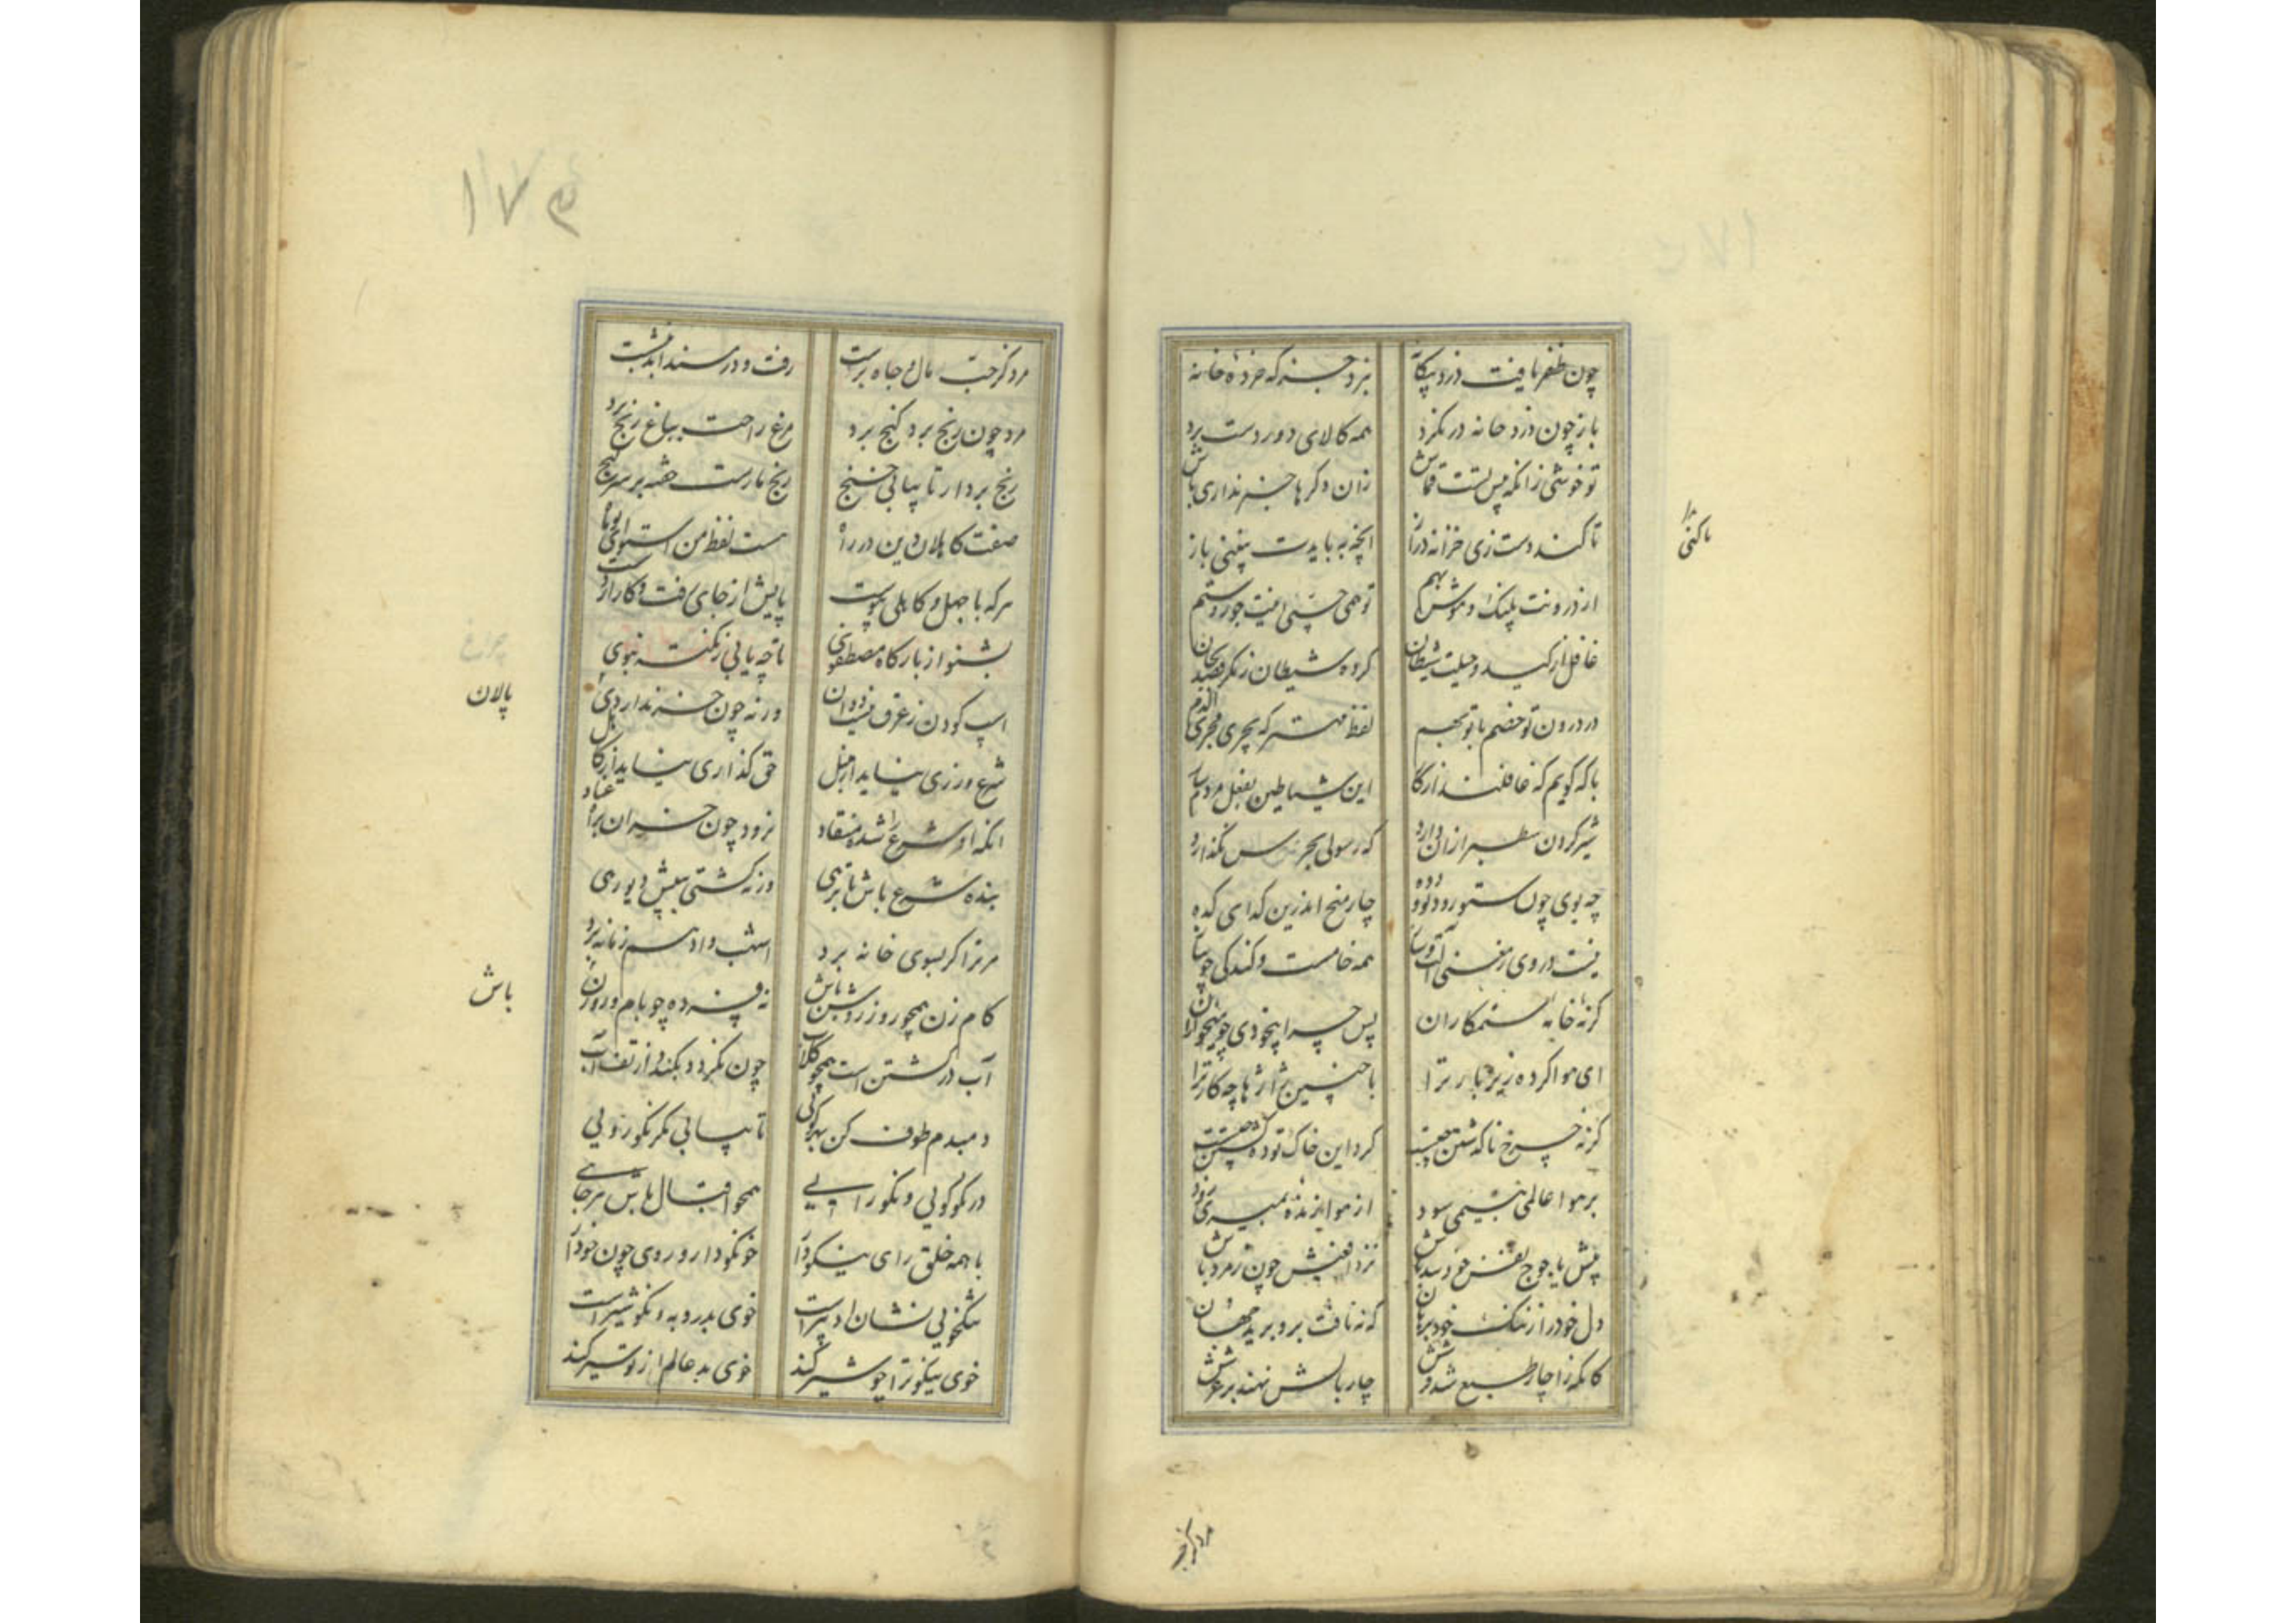 چون ظفر یافت دزد بیگانه
نبرد جز که خرده خانه
باز چون دزد خانه در نگرد
همه کالای دور دست برد
تو خوشی زانکه پس تست قماش
زان دگرها خبر نداری باش
تا کند دست زی خزانه دراز
آنچه به بایدت نبینی باز
از درونت پلنگ و موش بهم
تو همی خسبی اینت جور و ستم
غافل از کید و حیلت شیطان
کرده شیطان ز مکر قصد بجان
در درون تو خصم با تو بهم
لفظ مهتر که یجری مجری الدم
با که گویم که غافلند از کار
این شیاطین بفعل مردم
شیر گردن سطبر ازان دارد
که رسولی بخرس نگذارد
چه بوی چون ستور و دیو و دده
چار میخ اندرین گدای کده
نیست در وی ز مغنی آلت و ساز
همه خامست و گندگی چو پیاز
گر نه خانه ستمکاران
پس چرا بیخودی چو میخواران
ای هوا کرده زیر بار ترا
با چنین ژاژها چه کار ترا
گرنه چرخ ناگه شتن چیست
گرد این خاک توده گشتن چیست
بر هوا عالمی نسیمی سود
از هوا زنده بمیری زود
پیش یاجوج نفس خود سد باش
نزد افعیش چون زمرد باش
دل خود را ز ننگ خود برهان
که نه نافت برو برید جهان
کانکه را چار طبع شد
چار بالش نهند بر عرشش
تا کنی
مرد کز حب
۱۷۴
مرد کز حب مال و جاه برست
رفت و در مسند ابد بنشست
مرد چون رنج برد گنج برد
مرغ راحت بباغ رنج پرد
رنج بردار تا بیابی گنج
رنج مارست خفته بر سر گنج
صفت کاهلان دین در راه
هست لفظ من استوی یوماه
هر که با جهل و کاهلی پیوست
پایش از جای رفت و کار از دست
بشنو از بارگاه مصطفوی
تا چه یابی ز نکته نبوی
اسپ کودن ز عرف نیست دوان
ورنه چون خر ندارد
شرع ورزی نیاید از منبل
حق گذاری نیاید از کاهل
آنکه او شرع را شد منقاد
نرود چون خران براه عناد
بنده شرع باش تا برهی
ورنه گشتی به پیش دیو رهی
مر ترا گر بسوی خانه برد
اسب و ادهم زمانه برد
گام زن همچو روز روشن باش
نه فسرده چو بام و روزن
آب در گشتن است همچو گلاب
چون نگردد بگندد از تف آب
دمبدم طوف کن بهر کویی
تا بیابی مگر نکورویی
در نکوگویی و نکورایی
همچو اقبال باش هر جایی
با همه خلق رای نیکو دار
خو نکو دار و روی چون خود آر
نیکخویی نشان ادبیر است
خوی بد روبه و نکو شیر است
خوی نیکو ترا چو شیر کند
خوی بد عالم از تو سیر کند
پالان
باش